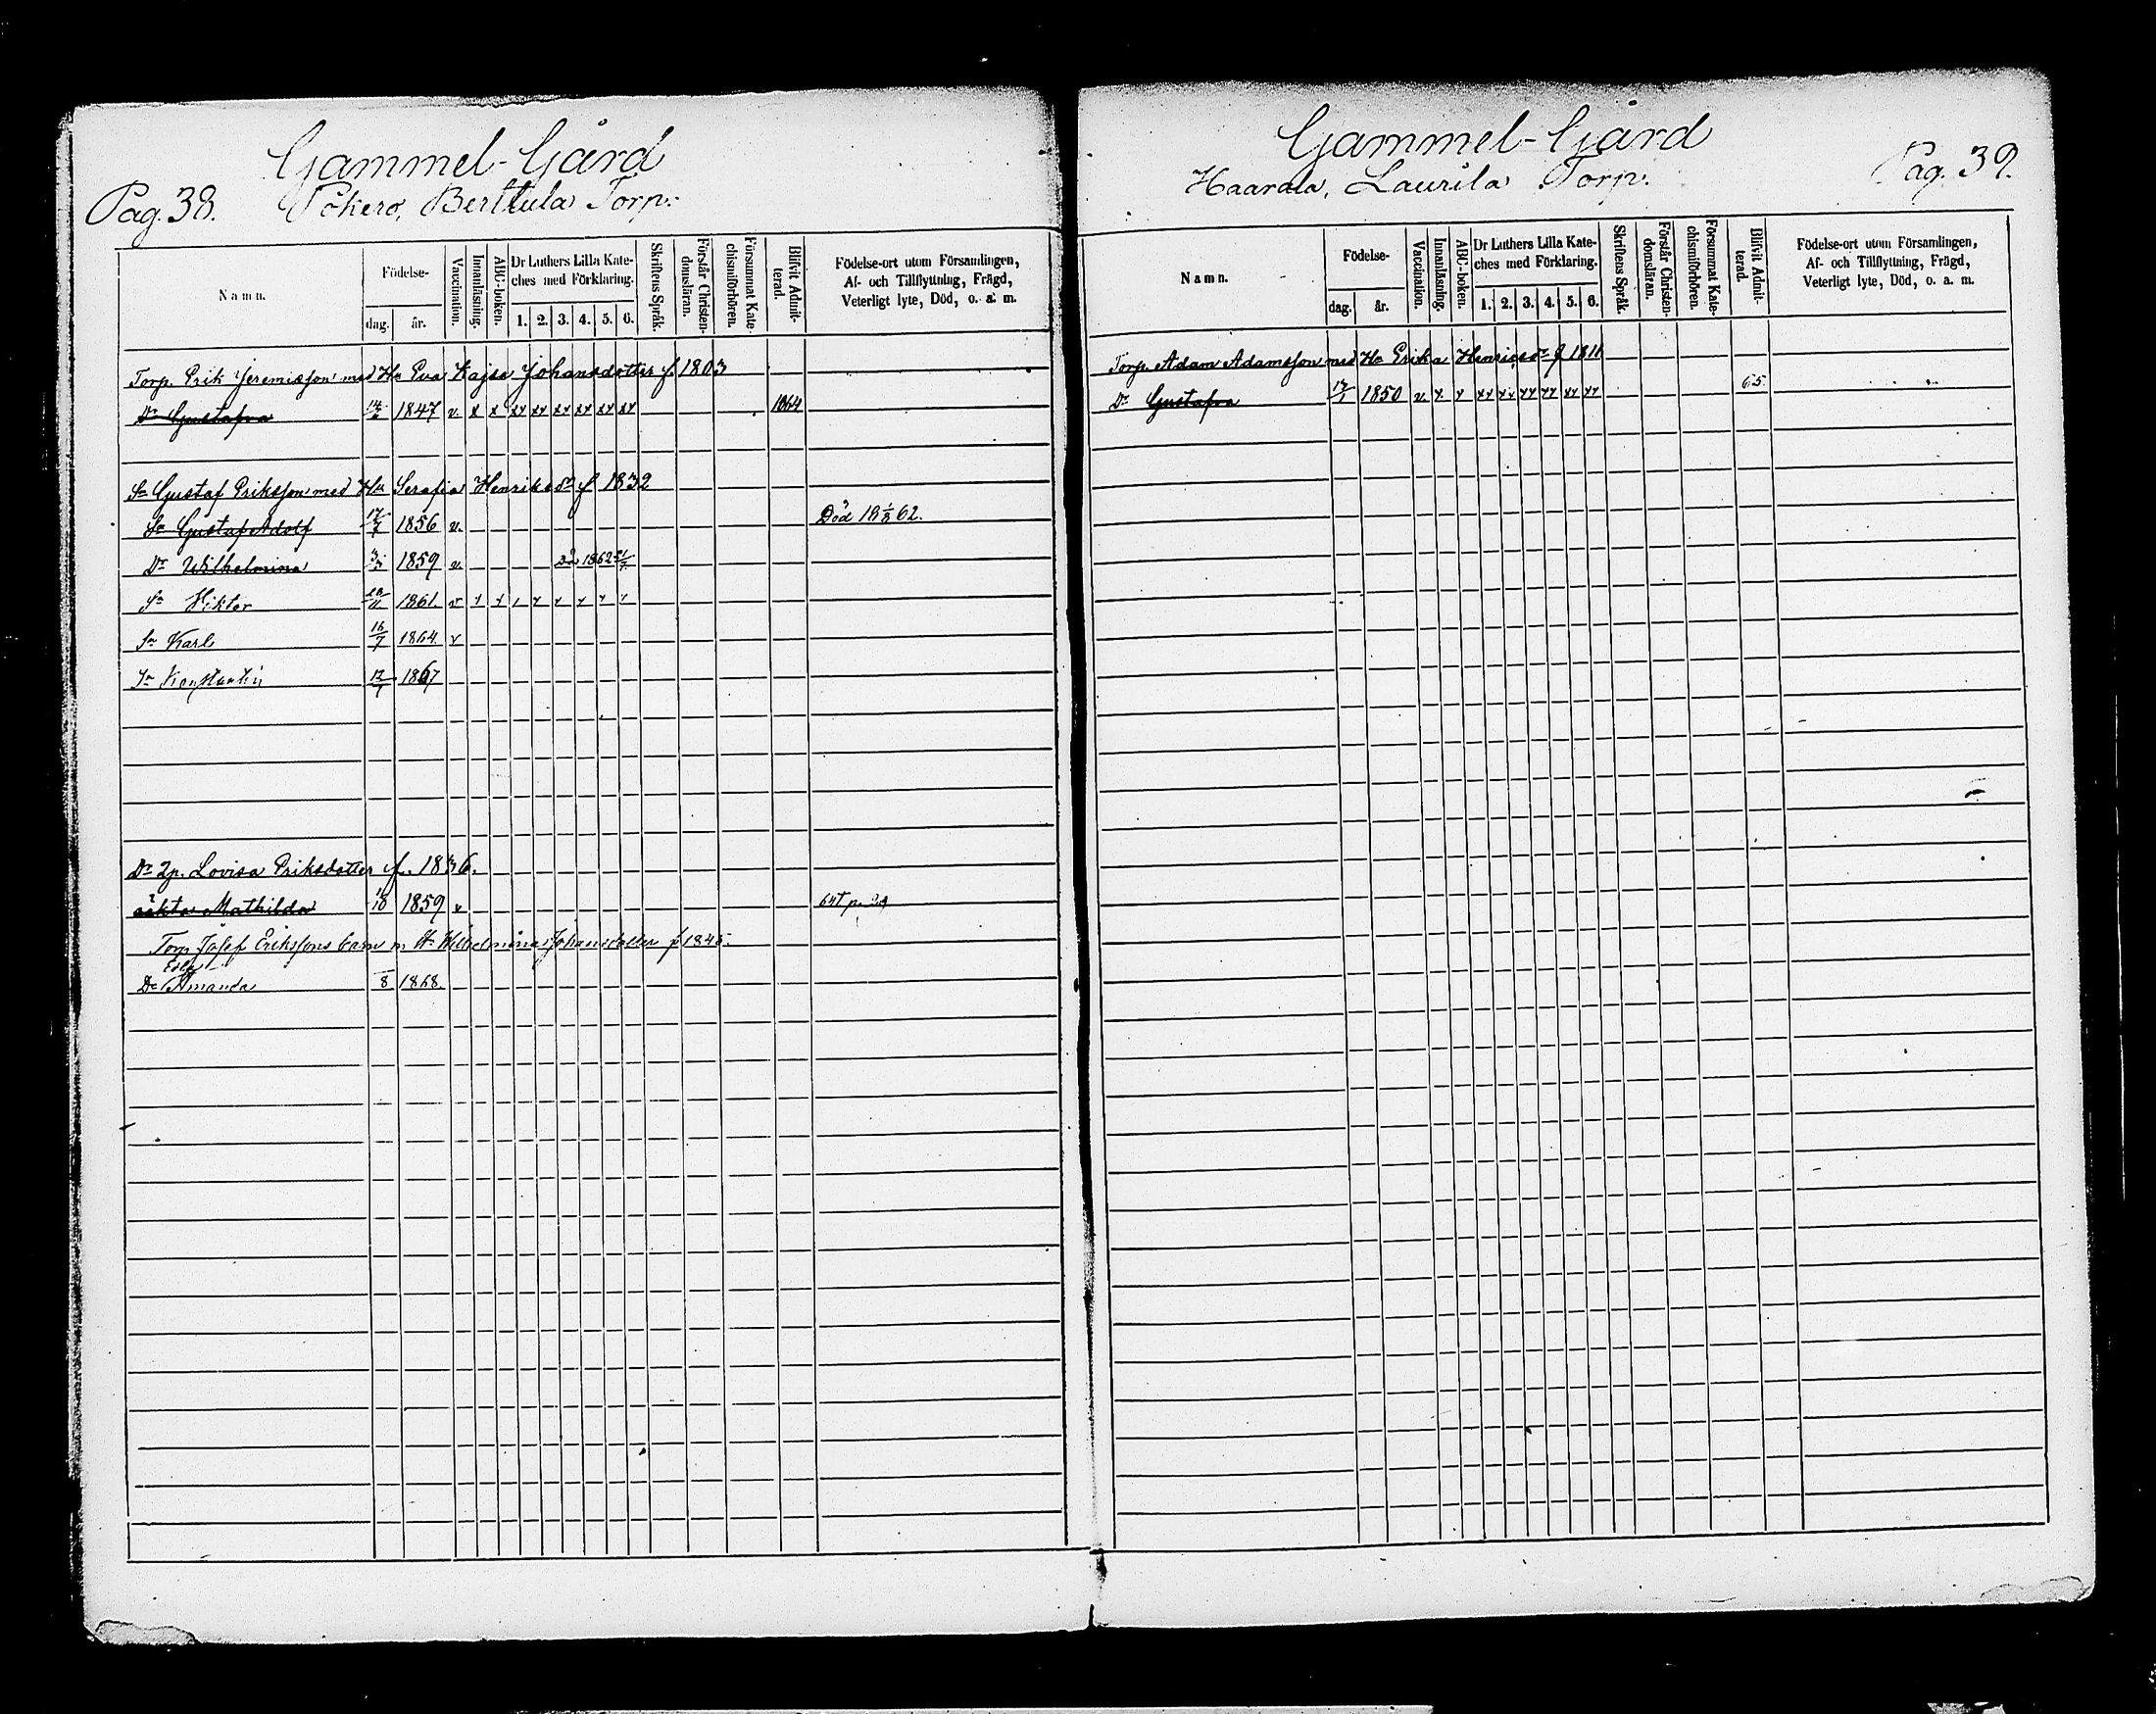 Gammel-Gård
Pag. 38. Påkero, Berttula Torp.
Namn.
Födelse-
dag. år.
Vaccination.
Innanläsning.
ABC-boken.
Dr Luthers Lilla Kate-
ches med Förklaring.
1. 2. 3. 4. 5. 6.
Skriftens Språk.
Förstår Christen-
domsläran.
Försummat Kate-
chismiförhören.
Blifvit Admit-
terad.
Födelse-ort utom Församlingen,
Af- och Tillflyttning, Frägd,
Veterligt lyte, Död, o. a. m.
Torp. Erik Jeremiasson med Hu Eva Kajsa Johansdotter f. 1803
Dr Gustafva 1847 v. x x xx xx xx xx xx xx 1864
Sn Gustaf Eriksson med Hu Serafia Henriksdr f 1832
Sn Gustaf Adolf 17/7 1856 v. Död 18 1/8 62.
Dr Wilhelmina 3/3 1859 v. 1862
Sn Viktor 1861. v
Sn Karl 16/7 1864 v
Sn Konstantin 12/1 1867
Dr 2p. Lovisa Eriksdotter f. 1836.
oäkta Mathilda 1859 v
Torp Josef Erikssons barn m H. Wilhelmina Johansdotter f 1845.
Edla
Dr Amanda 8 1868.
Gammel-Gård
Haarala, Laurila Torp. Pag. 39.
Namn.
Födelse-
dag. år.
Vaccination.
Innanläsning.
ABC-boken.
Dr Luthers Lilla Kate-
ches med Förklaring.
1. 2. 3. 4. 5. 6.
Skriftens Språk.
Förstår Christen-
domsläran.
Försummat Kate-
chismiförhören.
Blifvit Admit-
terad.
Födelse-ort utom Församlingen,
Af- och Tillflyttning, Frägd,
Veterligt lyte, Död, o. a. m.
Torp. Adam Adamsson med Hu Erika Henricsdr f 1811
Dr Gustafva 17/1 1850 v. x x xx xx xx xx xx xx 65.